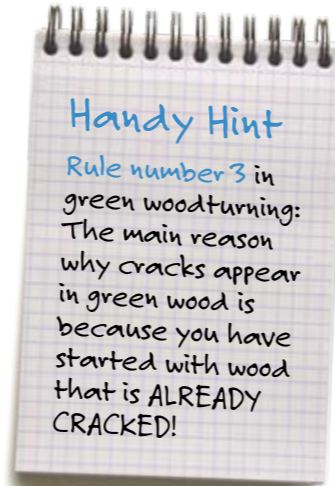 Handy Hint
Rule number 3 in
green woodturning:
The main reason
why cracks appear
in green wood is
because you have
started with wood
that is ALREADY
CRACKED!